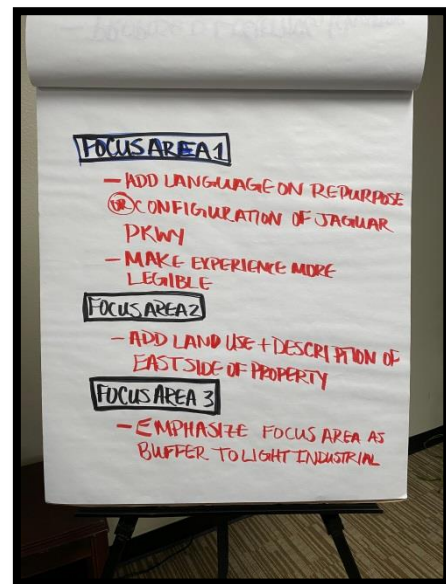 FOCUS AREA 1
- ADD LANGUAGE ON REPURPOSE
OR CONFIGURATION OF JAGUAR
PKWY
- MAKE EXPERIENCE MORE
LEGIBLE
FOCUS AREA 2
- ADD LAND USE + DESCRIPTION OF
EAST SIDE OF PROPERTY
FOCUS AREA 3
- EMPHASIZE FOCUS AREA AS
BUFFER TO LIGHT INDUSTRIAL